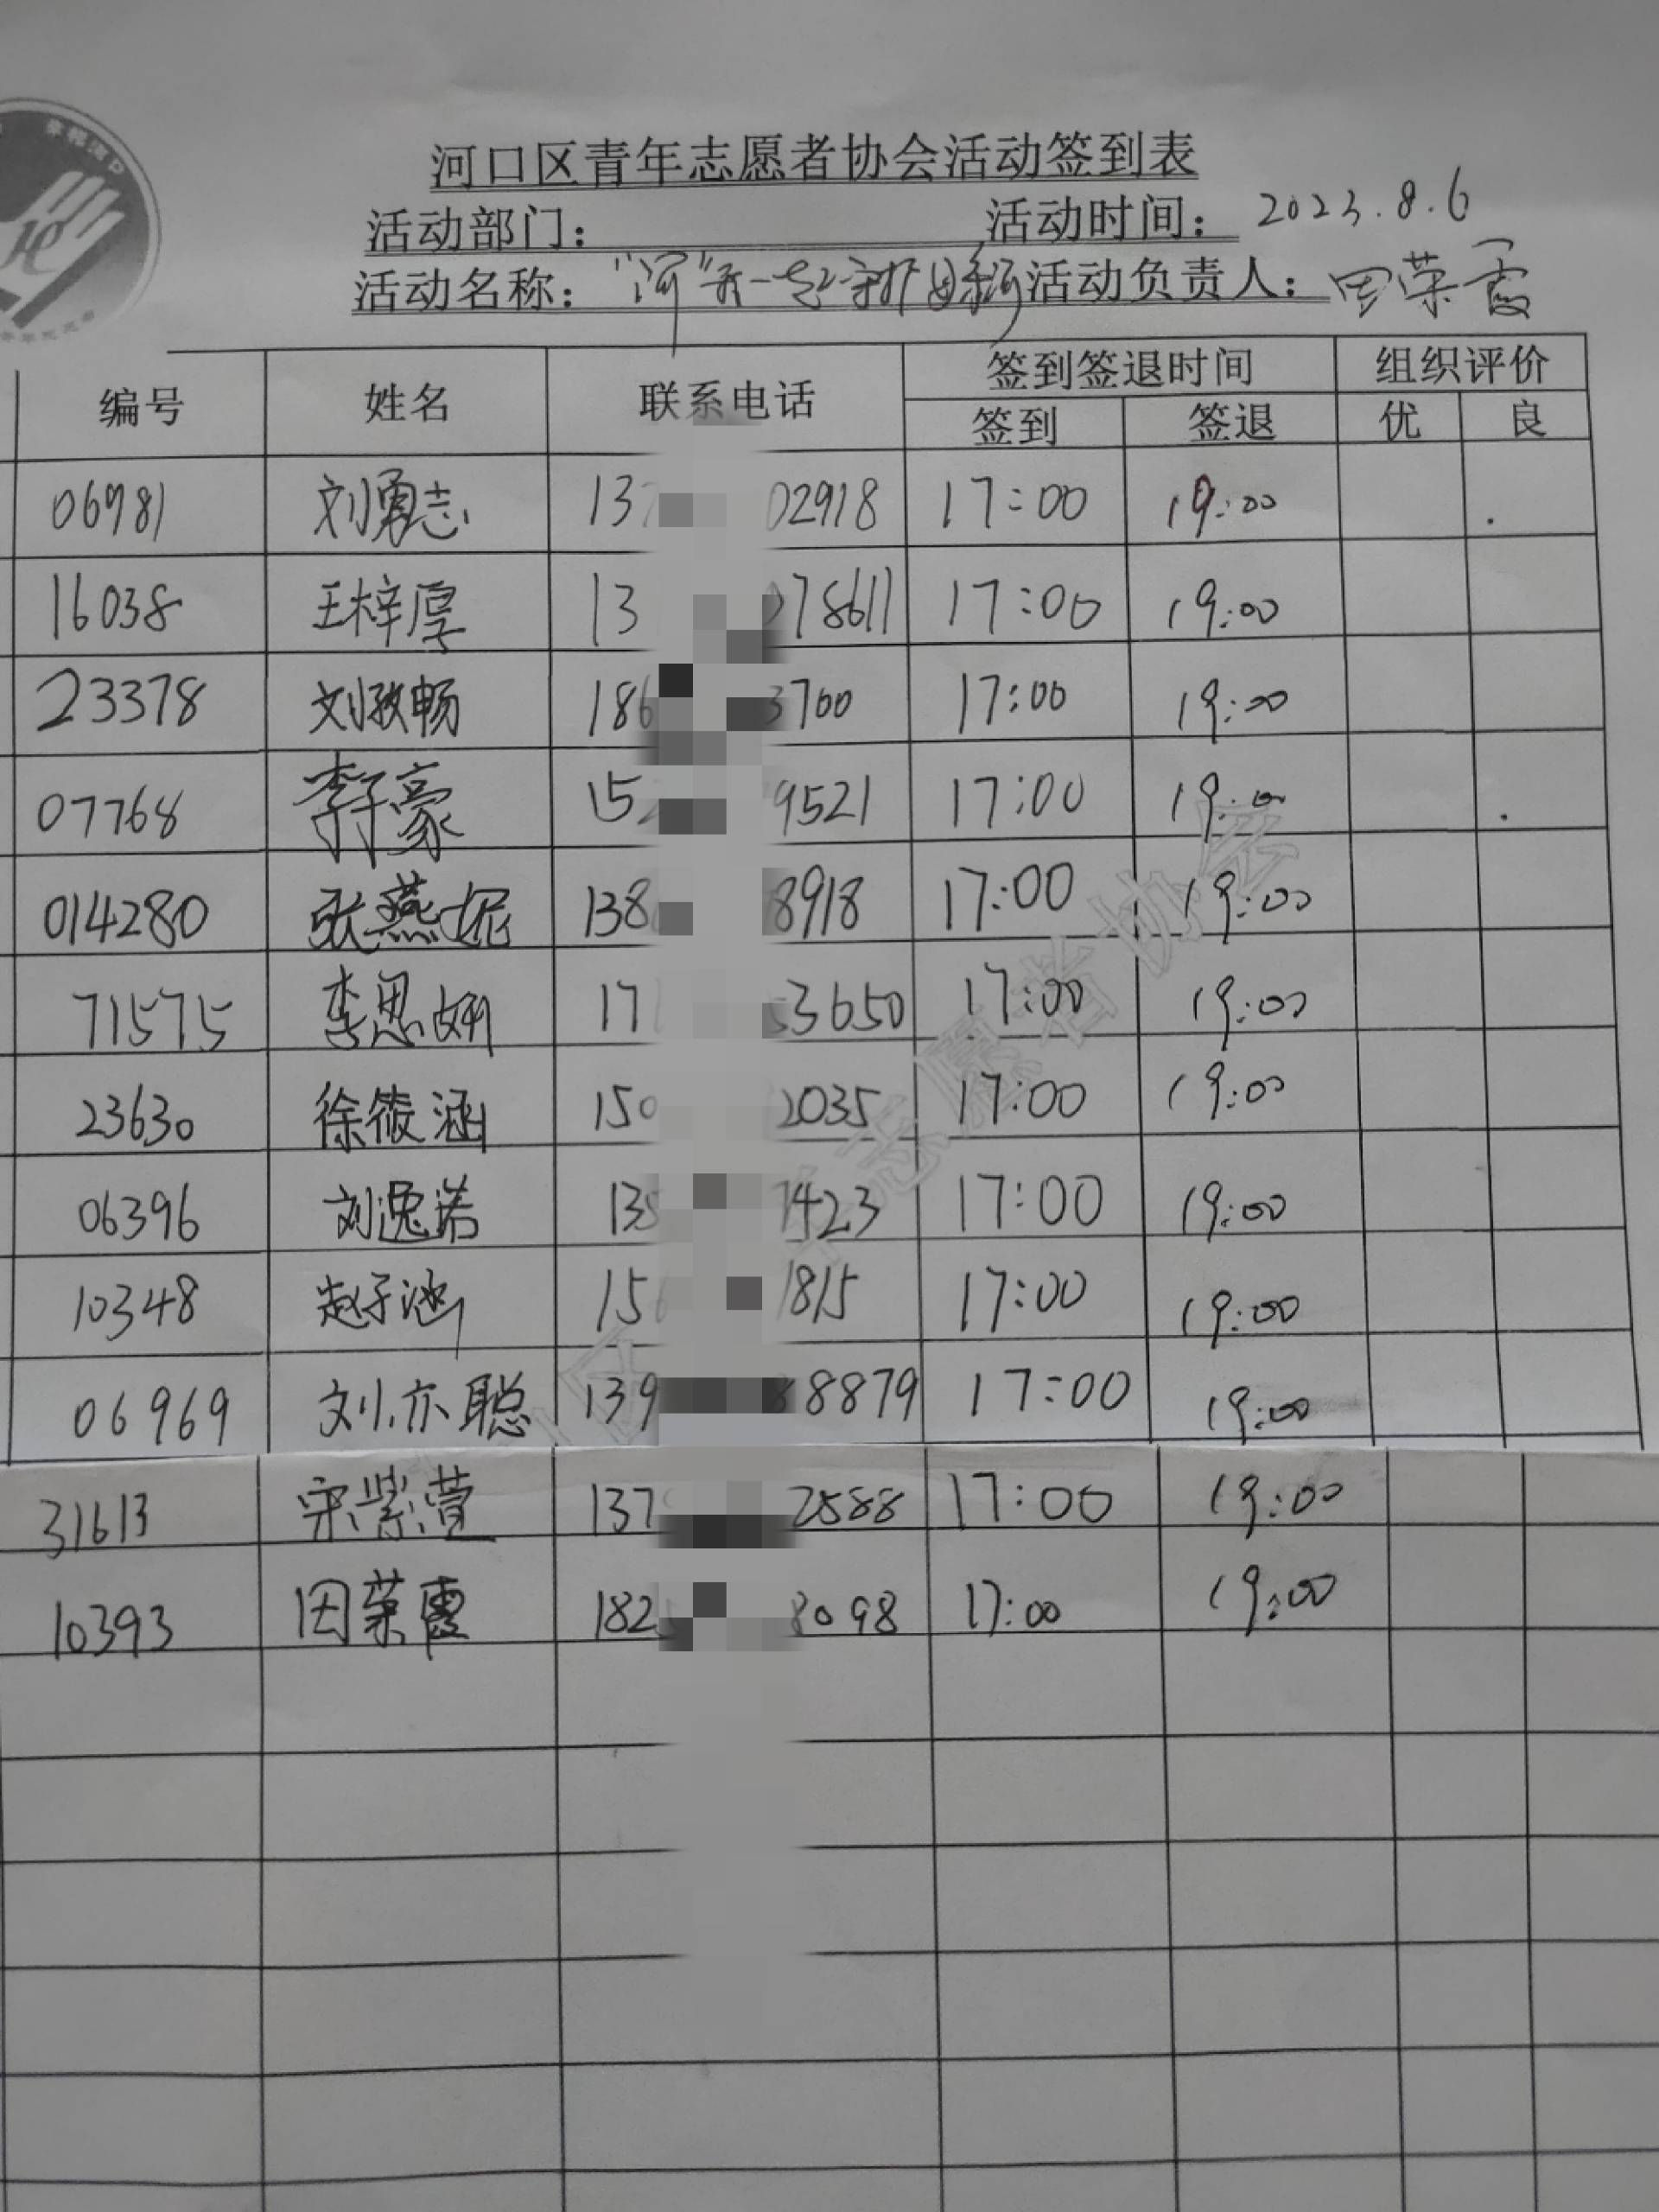 河口区青年志愿者协会活动签到表
活动部门： 活动时间： 2023.8.6
活动名称： "河"我一起守护母亲河 活动负责人： 田荣霞
编号 姓名 联系电话 签到签退时间 组织评价
签到 签退 优 良
06981 刘勇志 13 02918 17:00 19:00
16038 王梓厚 13 78611 17:00 19:00
23378 刘孜畅 186 3700 17:00 19:00
07768 李子豪 15 9521 17:00 19:00
014280 张燕妮 138 8918 17:00 19:00
71575 李思妍 17 3650 17:00 19:00
23630 徐筱涵 150 2035 17:00 19:00
06396 刘逸诺 135 7423 17:00 19:00
10348 赵子涵 15 1815 17:00 19:00
06969 刘亦聪 139 8879 17:00 19:00
31613 宋紫萱 137 2588 17:00 19:00
10393 田荣霞 182 8098 17:00 19:00
志愿者协会